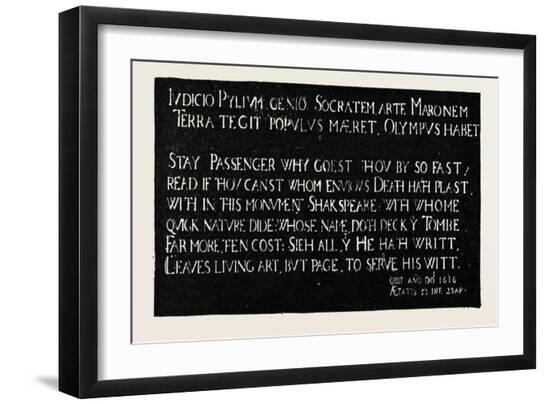 IVDICIO PYLIVM, GENIO SOCRATEM, ARTE MARONEM
TERRA TEGIT POPVLVS MÆRET, OLYMPVS HABET
STAY PASSENGER WHY GOEST THOV BY SO FAST,
READ IF THOV CANST WHOM ENVIOVS DEATH HATH PLAST,
WITH IN THIS MONVMENT SHAKSPEARE: WITH WHOME
QVICK NATVRE DIDE: WHOSE NAME, DOTH DECK Y TOMBE
FAR MORE, TEN COST: SIEH ALL, Y HE HATH WRITT,
LEAVES LIVING ART, BVT PAGE, TO SERVE HIS WITT.
OBIT AÑO DO 1616
ÆTATIS 53 DIE 23 AP.